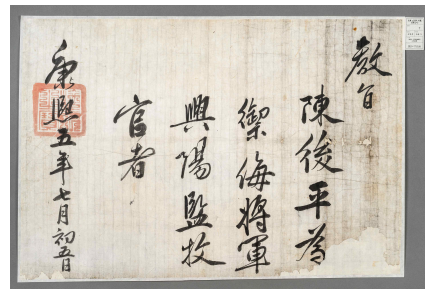 敎旨
陳俊平爲
禦侮將軍
興陽監牧
官者
康熙五年七月初五日